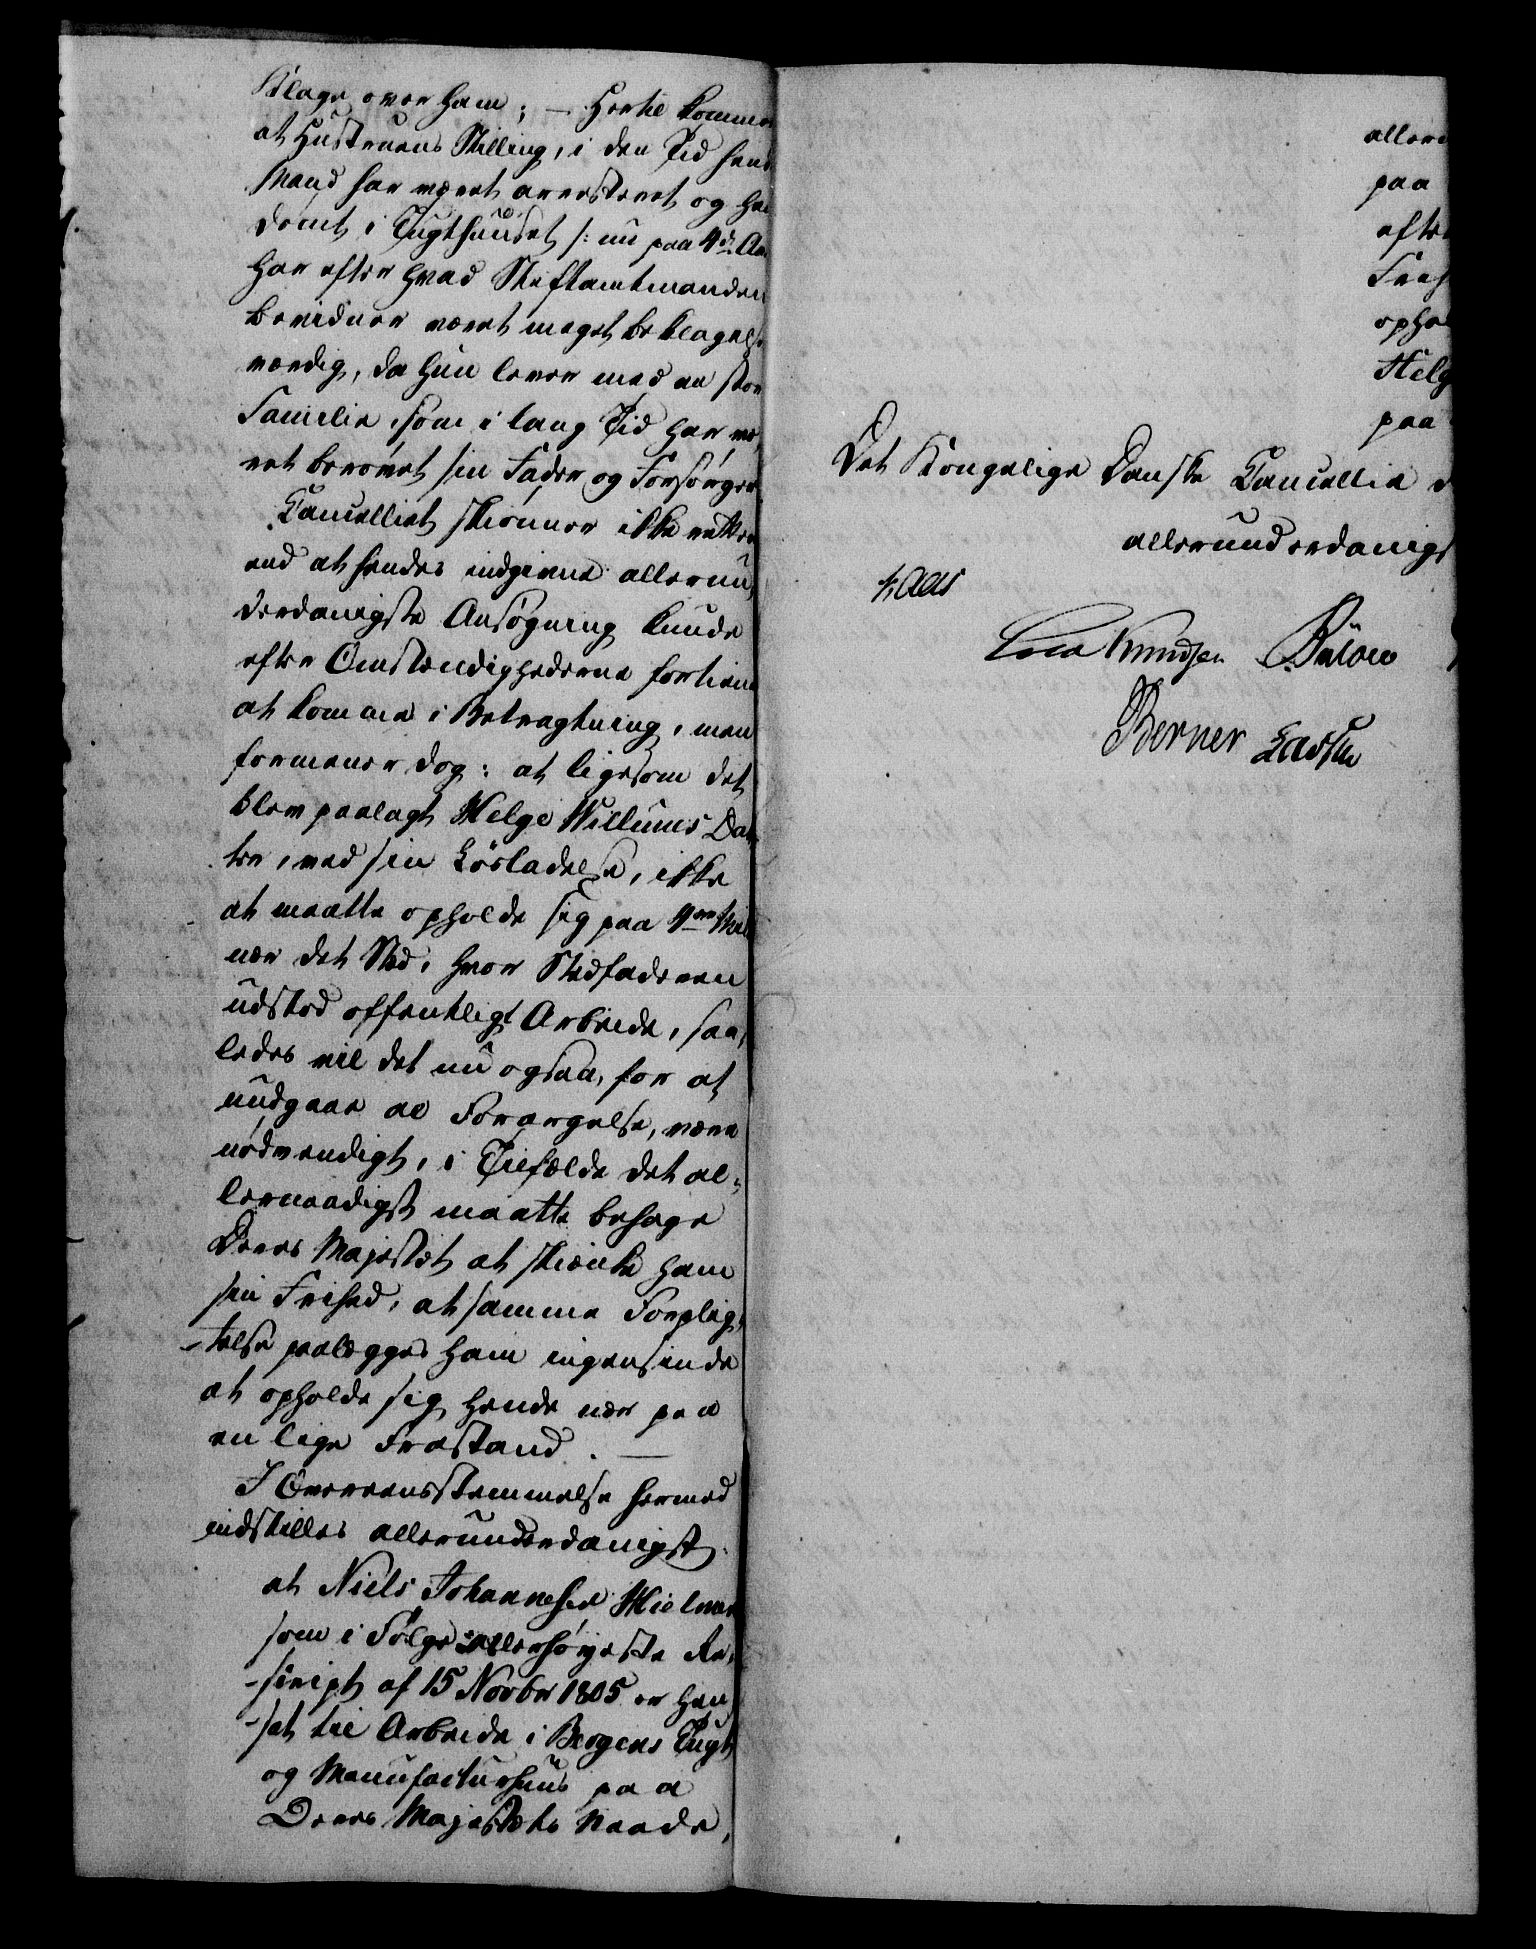 Klage over ham; — Hertil kommer
at Hustruens Stilling, i den Tid hendes
Mand har været arresteret og hen
dømt i Tugthuuset /: nu paa 4de Aar
har efter hvad Stiftamtmanden
bevidner været meget beklagelses
værdig, da hun lever med en stor
Familie, som i lang Tid har væ,
ret berøvet sin Fader og Forsørger.
Cancelliet skiønner ikke rettere
end at hendes indgivne allerun,
derdanigste Ansøgning kunde
efter Omstændighederne fortiene
at komme i Betragtning, men
formener dog: at ligesom det
blev paalagt Helge Willums Dat
ter, ved sin Løsladelse, ikke
at maatte opholde sig paa 4re Miil
nær det Sted, hvor Stedfaderen
udstod offentligt Arbeide, saa,
ledes vil det nu ogsaa, for at
undgaae al Forargelse, være
nødvendigt, i Tilfælde det al,
lernaadigst maatte behage
Deres Majestæt at skienke ham
sin Frihed, at samme Forplig,
telse paalegges ham ingensinde
at opholde sig hende nær paa
en lige Frastand. —
I Overeensstemmelse hermed
indstilles allerunderdanigst:
at Niels Johannesen Hielmen
som i Følge allerhøyeste Re,
script af 15 Novbr 1805 er hen
sat til Arbeide i Bergens Tugt
og Manufacturhuus paa
Deres Majestæts Naade,
aller
paa
efter
Frih
ophol
Helg
paa
Det Kongelige Danske Cancellie d
allerunderdanigst
Kaas
Knudsen Bülow
Berner Lassen